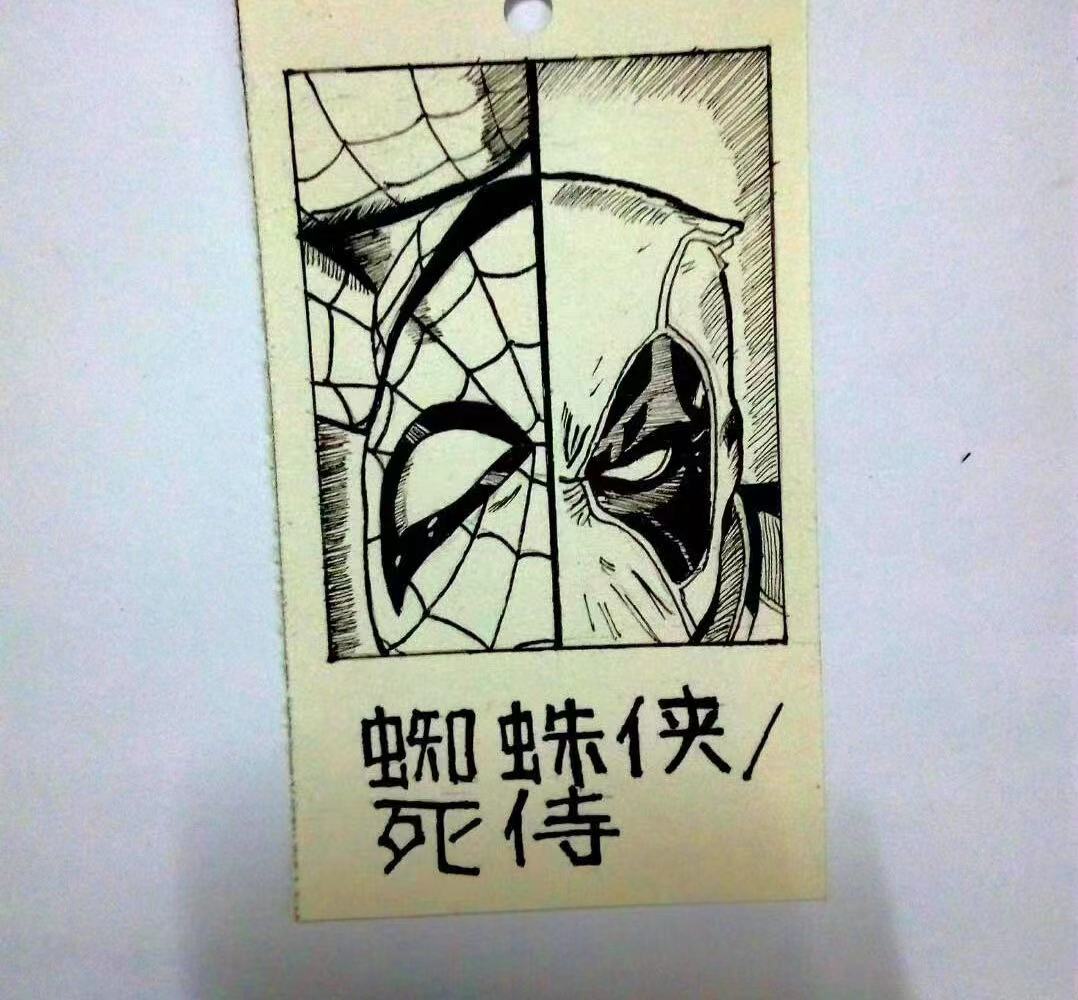 蜘蛛侠/
死侍